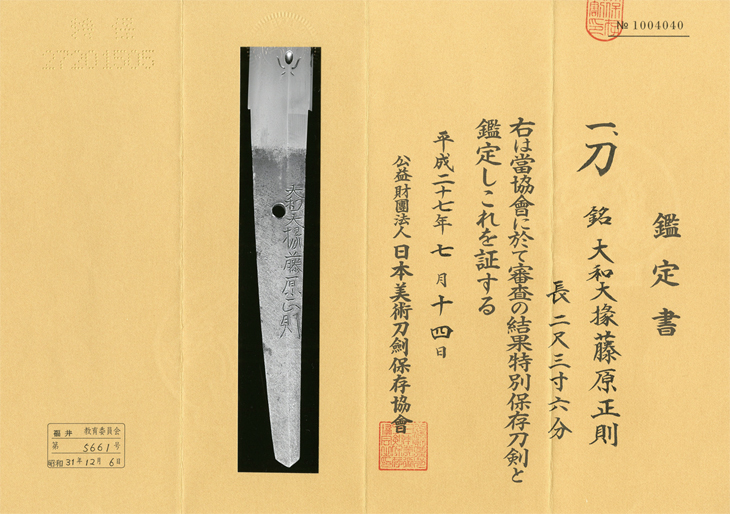 № 1004040
鑑定書
一、刀 銘 大和大掾藤原正則
長 二尺三寸六分
右は當協會に於て審査の結果特別保存刀剣と
鑑定しこれを証する
平成二十七年 七月十四日
公益財團法人 日本美術刀劍保存協會
大和大掾藤原正則
福井 教育委員会
第 5661 号
昭和31年12月6日